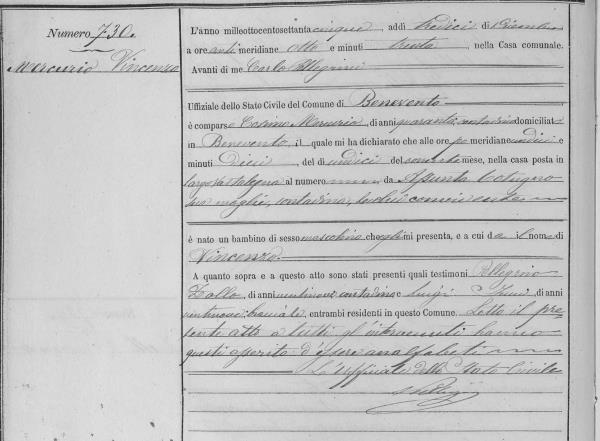 Numero 730.
Mercurio Vincenzo
L'anno milleottocentosettanta cinque, addì tredici di Dicembre
a ore anti meridiane otto e minuti trenta, nella Casa comunale.
Avanti di me Carlo Pellegrini
Uffiziale dello Stato Civile del Comune di Benevento
è comparso Cosimo Mercurio, di anni quaranta, contadino domiciliato
in Benevento, il quale mi ha dichiarato che alle ore po meridiane undici e
minuti Dieci, del dì undici del corrente mese, nella casa posta in
largo al numero da Assunta Cotugno
sua moglie, contadina, lui convivente
è nato un bambino di sesso maschino che egli mi presenta, e a cui da il nome di
Vincenzo.
A quanto sopra e a questo atto sono stati presenti quali testimoni Pellegrino
Zallo, di anni ventinove contadino e Luigi di anni
ventinove bracciale, entrambi residenti in questo Comune. Letto il pre-
sente atto a tutti gl'intervenuti hanno
questi asserito d'essere analfabeti
L'Uffiziale dello Stato Civile